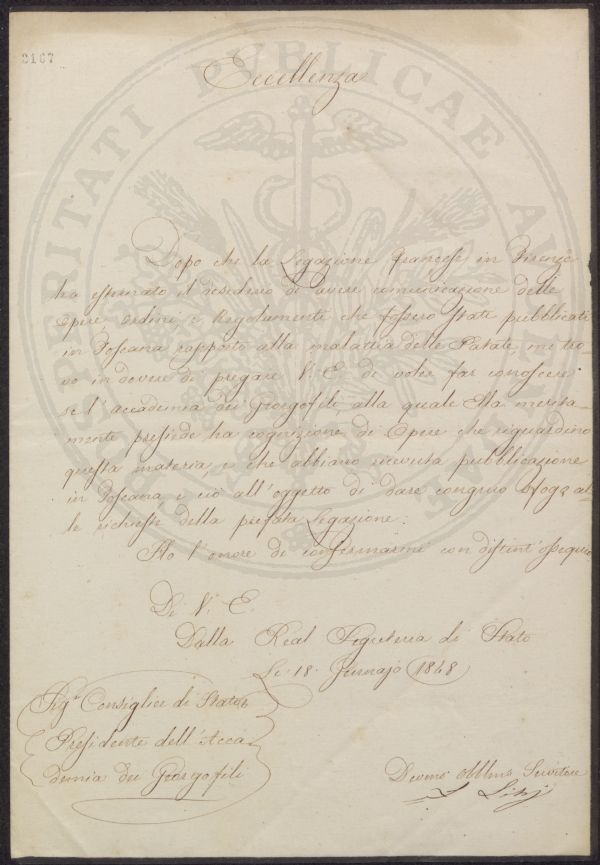 2167
Eccellenza
Dopo che la Legazione Francese in Firenze
ha esternato il desiderio di avere comunicazione delle
Opere, Ordini, e Regolamenti che fossero stati pubblicati
in Toscana rapporto alla malattia delle Patate, mi tro-
vo in dovere di pregare V. E. di voler far conoscere
se l'accademia dei Georgofili alla quale Ella merita-
mente presiede ha cognizione di Opere che riguardino
questa materia, e che abbiano ricevuta pubblicazione
in Toscana e ciò all'oggetto di dare congruo sfogo al-
le richieste della prefata Legazione.
Ho l'onore di confermarmi con distint'ossequio
Di V. E.
Dalla Real Segreteria di Stato
Li 18. Gennajo 1848
Sigr Consiglier di Stato
Presidente dell'Acca-
demia dei Georgofili
Devmo Obblmo Servitore
PROSPERITATI PUBLICAE AUGENDAE